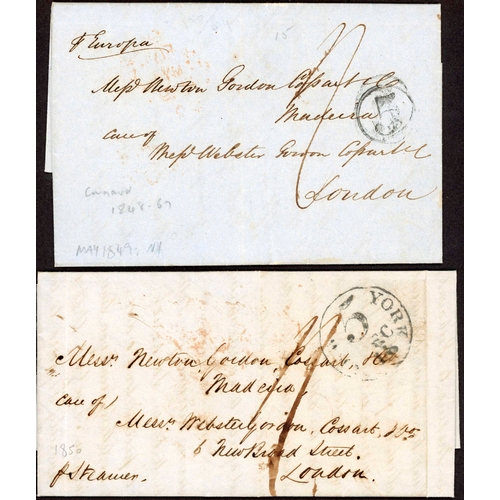 15
p Europa
Messrs Newton Gordon Cossart & Co
Madeira
care of
Messrs Webster Gordon Cossart & Co
London
1848-67
MAY 1849, NY
YORK
5
DEC
Messrs Newton, Gordon, Cossart, & Co
Madeira,
care of
Messrs Webster Gordon, Cossart, & Co
6 New Broad Street,
London.
1850
p Steamer.